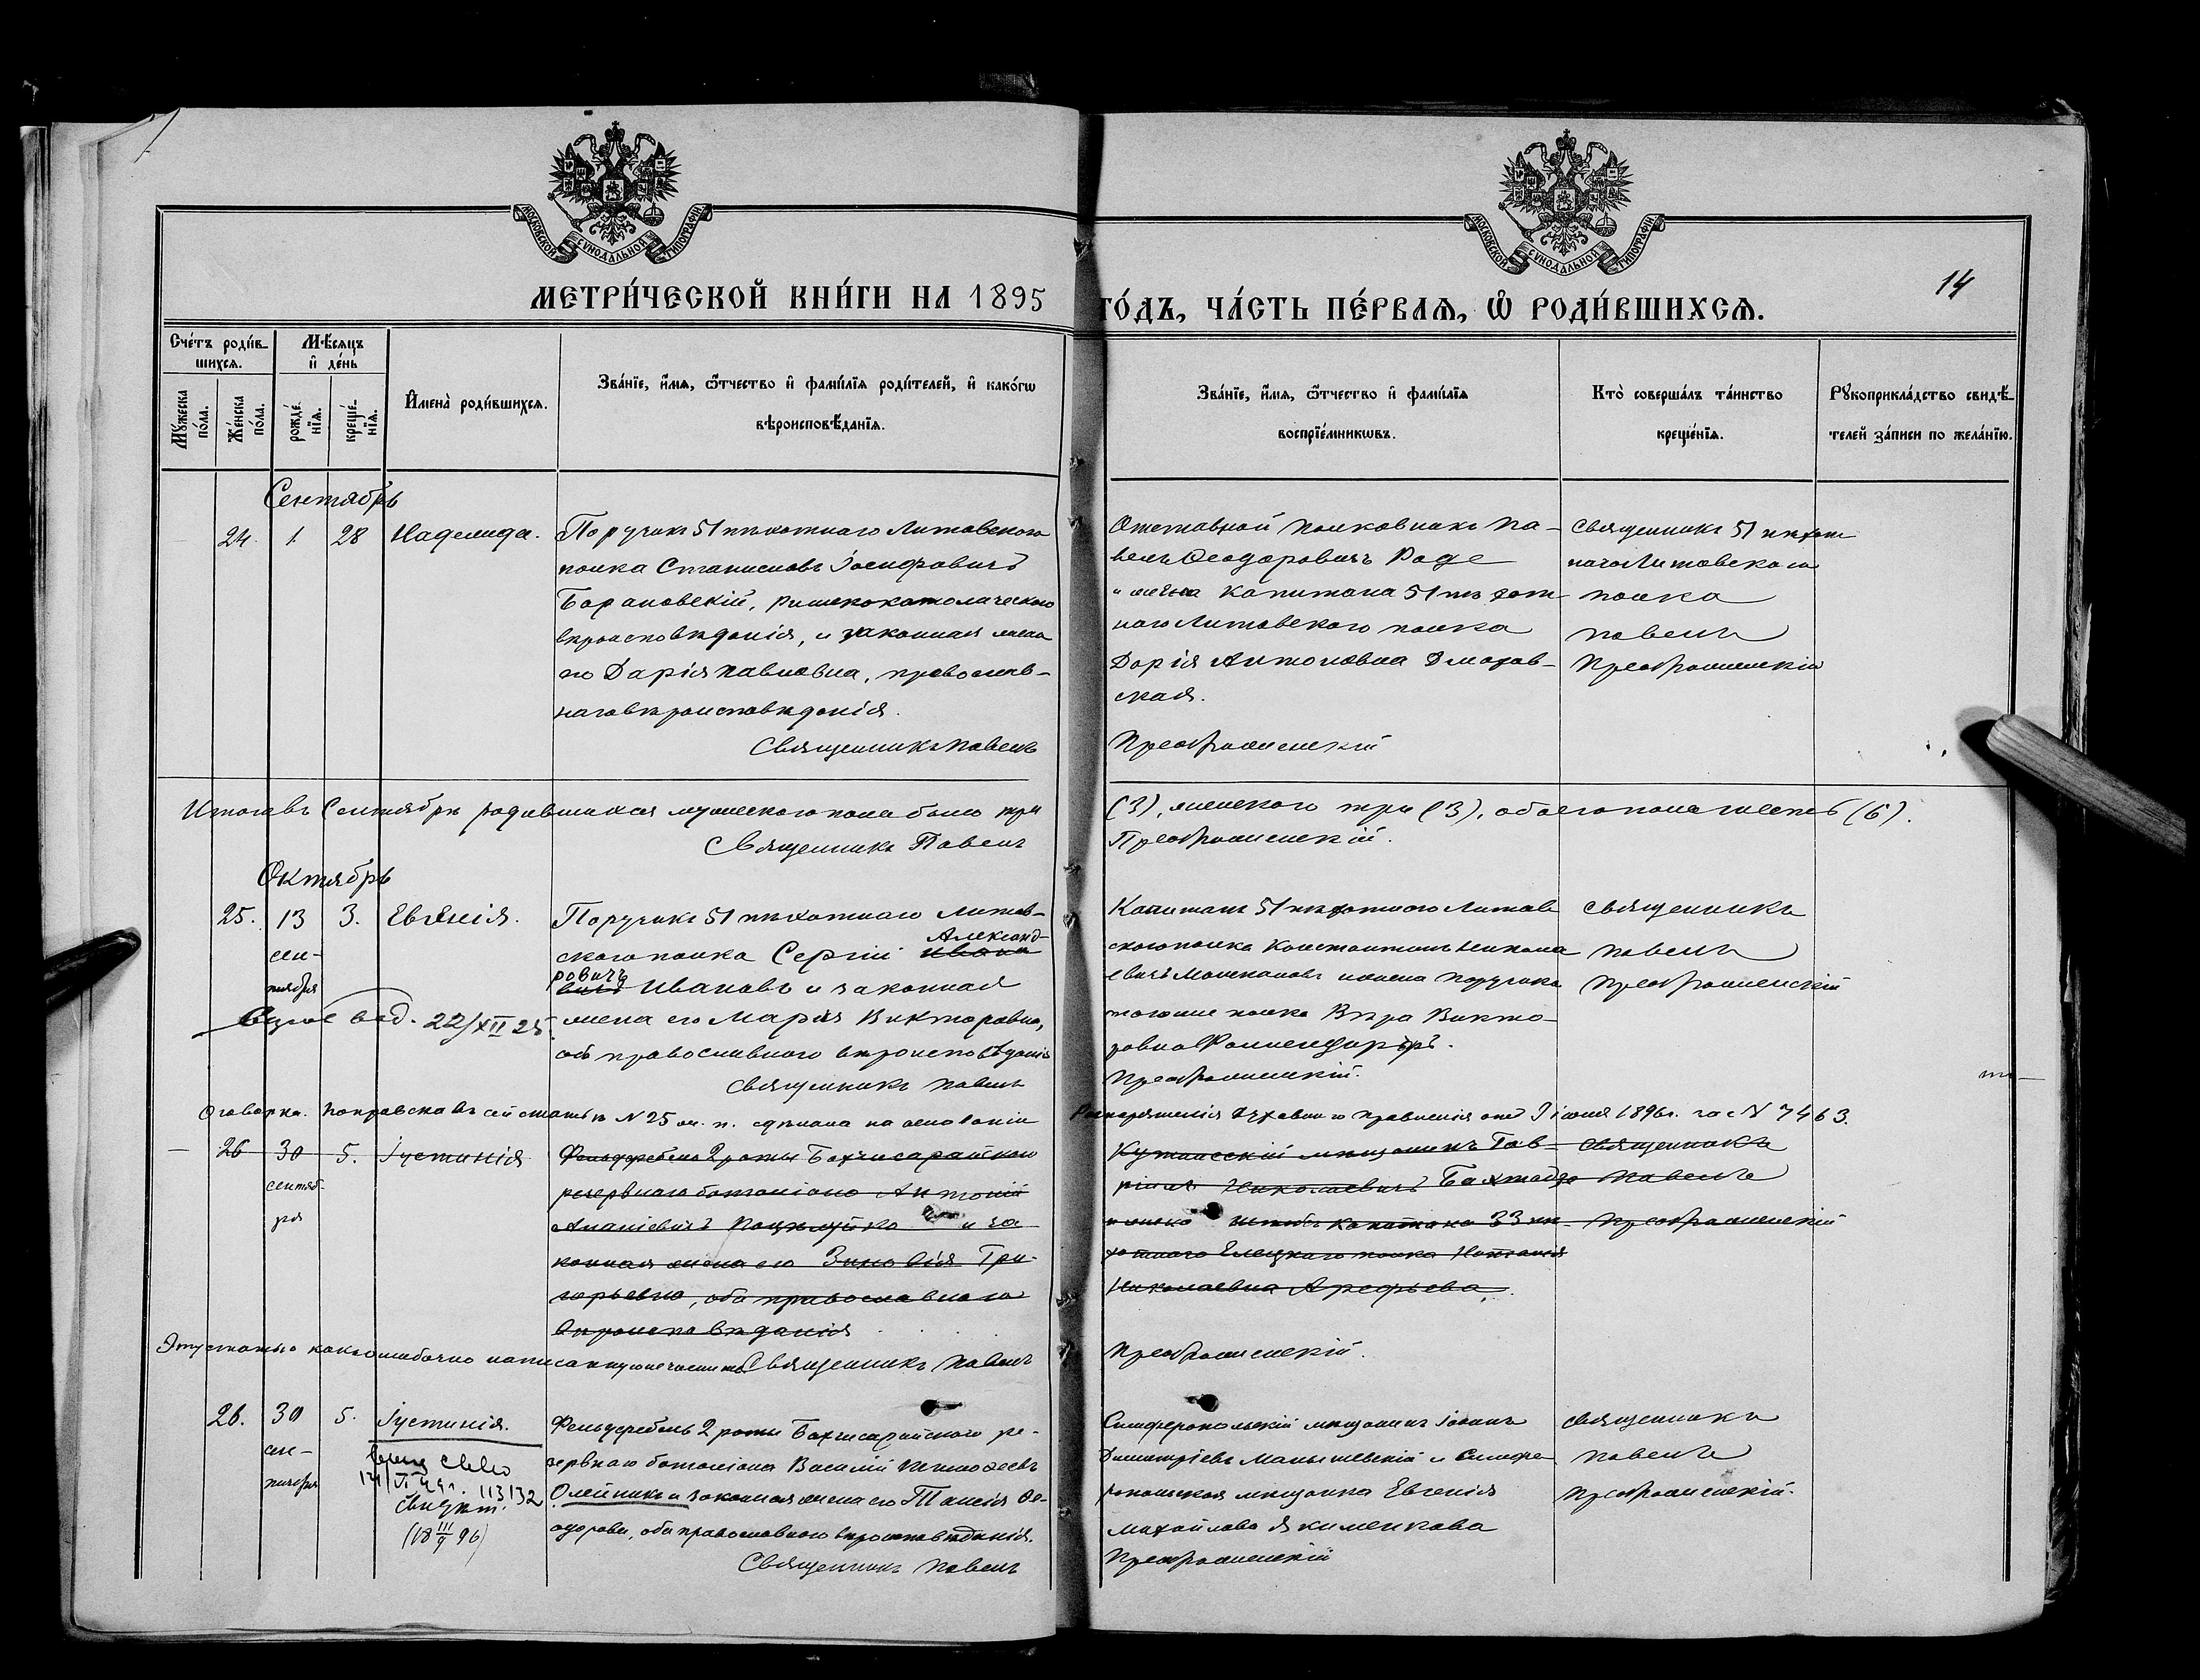 МОСКОВСКОЙ СѴНОДАЛЬНОЙ ТИПОГРАФІИ.
МОСКОВСКОЙ СѴНОДАЛЬНОЙ ТИПОГРАФІИ.
14
МЕТРИ́ЧЕСКОЙ КНИ́ГИ НА 1895 ГО́ДЪ, ЧА́СТЬ ПЕ́РВАѦ, Ѡ҆ РОДИ́ВШИХСѦ.
Сче́тъ роди́в-
шихся.
Мѣ́сяцъ
и҆ де́нь
Мꙋ́жеска
по́ла.
Же́нска
по́ла.
рожде́-
нїѧ.
креще́-
нїѧ.
И҆мена̀ роди́вшихсѧ.
Зва́нїе, и҆́мѧ, ѻ҆́тчество и҆ фами́лїѧ роди́телей, и҆ како́гѡ
вѣроисповѣ́данїѧ.
Зва́нїе, и҆́мѧ, ѻ҆́тчество и҆ фами́лїѧ
воспрїе́мникѡвъ.
Кто̀ соверша́лъ та́инство
креще́нїѧ.
Рꙋкоприкла́дство свидѣ́-
телей за́писи по жела́нїю.
Сентябрь
24. 1. 28 Надежда.
Поручикъ 51 пѣхотнаго Литовскаго
полка Станиславъ Іосифовичъ
Барановскій, римско католическаго
вѣроисповѣданія, и законная жена
его Дарія Павловна, православ-
наго вѣроисповѣданія.
Священникъ Павелъ
Отставной полковникъ Па-
велъ Ѳеодоровичъ Роде
и жена капитана 51 пѣхот-
наго Литовскаго полка
Дарія Антоновна
ская.
Преображенскій
Священникъ 51 пѣхот
наго Литовскаго
полка
Павелъ
Преображенскій
Итого въ Сентябрѣ родившихся мужескаго пола было три
(3), женскаго три (3), обоего пола шесть (6).
Священникъ Павелъ
Преображенскій.
Октябрь
25. 13 3. Евгенія.
сен-
тября
22/XII 25.
Поручикъ 51 пѣхотнаго Литов-
Александ-
скаго полка Сергій Ивано
ровичъ
вичъ Ивановъ и законная
жена его Марія Викторовна,
оба православнаго вѣроисповѣданія
Священникъ Павелъ
Капитанъ 51 пѣхотнаго Литов
скаго полка Константинъ Никола
евичъ и жена поручика
тогоже полка Вѣра Викто-
ровна
Преображенскій.
Священникъ
Павелъ
Преображенскій
Оговорка. Поправка въ сей статьѣ N 25 ж. п. сдѣлана на основаніи
Распоряженія Духовнаго Правленія отъ 9 іюня 1896 г. за N 7463.
26 30 5. Іустинія
сентяб-
ря
Фельдфебель 2 роты Бахчисарайскаго
резервнаго баталіона Антоній
Ананіевичъ и за
конная жена его Зиновія Гри-
горьевна, оба православнаго
вѣроисповѣданія
Кутаисскій мѣщанинъ Гав-
ріилъ Николаевичъ Бахтадзе
и жена штабсъ капитана 33 пѣ-
хотнаго Елецкаго полка Наталія
Николаевна Арефьева.
Священникъ
Павелъ
Преображенскій
Эту статью какъ ошибочно написанную не числить Священникъ Павелъ
Преображенскій.
26. 30 5. Іустинія.
сен-
тября
113132
(18 III/9 96)
Фельдфебель 2 роты Бахчисарайскаго ре-
зервнаго баталіона Василій Тимоѳеевъ
Олейникъ и законная жена его Таисія Ѳе-
одорова, оба православнаго вѣроисповѣданія.
Священникъ Павелъ
Симферопольскій мѣщанинъ Іоаннъ
Димитріевъ Малышевскій и Симфе-
ропольская мѣщанка Евгенія
Михайлова Якименкова
Преображенскій
Священникъ
Павелъ
Преображенскій.